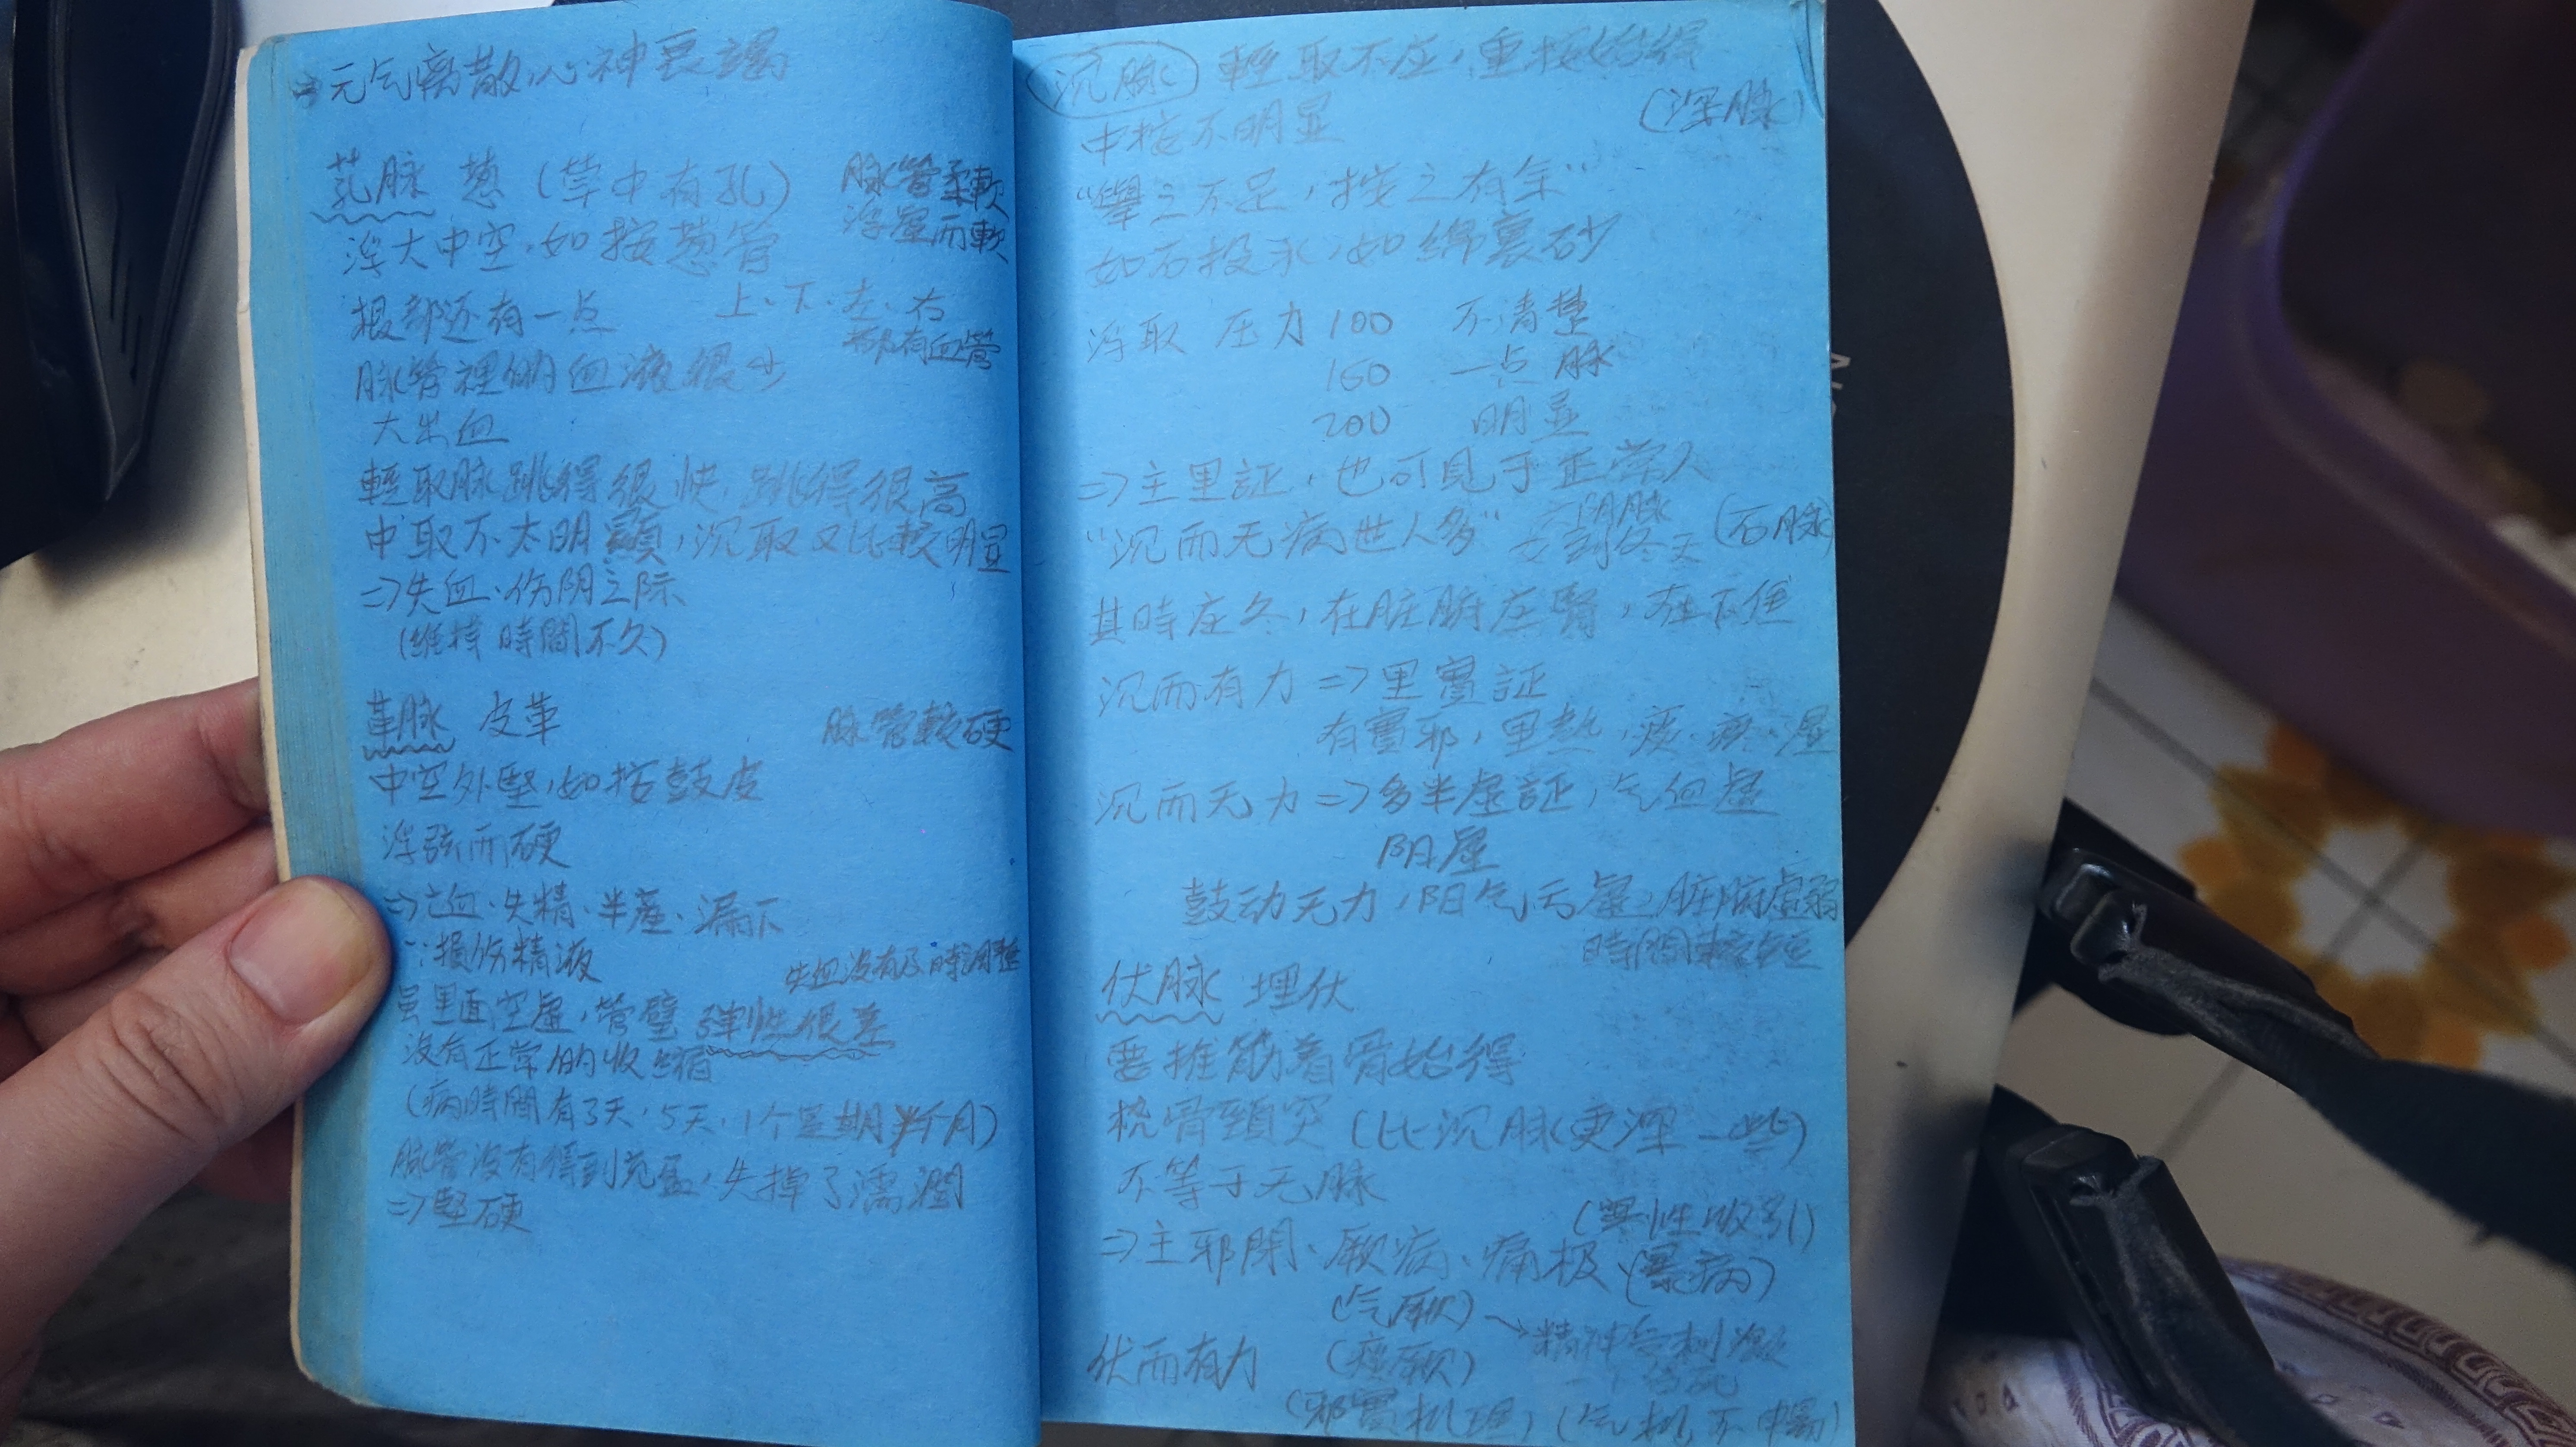 ⇒元气离散,心神衰竭
芤脉 葱 (草中有孔)
脉管柔軟
浮虚而軟
浮大中空,如按葱管
根部还有一点
上、下、左、右
都有血管
脉管裡的血液很少
大出血
輕取脉跳得很快,跳得很高
中取不太明顯,沉取又比較明显
⇒失血、伤阴之际
(维持時間不久)
革脉 皮革
脉管較硬
中空外堅,如按鼓皮
浮弦而硬
⇒亡血、失精、半产、漏下
∵損伤精液
失血没有及時調整
虽里面空虚,管壁 弹性很差
没有正常的收缩
(病時間有3天、5天、1个星期,半个月)
脉管没有得到充盈,失掉了濡潤
⇒堅硬
沉脉 輕取不应,重按始得
(深脉)
中按不明显
“舉之不足,按之有余”
如石投水,如綿裹砂
浮取 压力 100 不清楚
150 一点 脉
200 明显
⇒主里証,也可見于正常人
“沉而无病世人多” 六阴脉
到冬天 (石脉)
其時应冬,在脏腑应腎,在下焦
沉而有力 ⇒里實証
有實邪,里熱、痰、瘀、湿
沉而无力 ⇒多半虚証,气血虚
阳虚
鼓动无力,阳气亏虚,脏腑虚弱
時間較短
伏脉 埋伏
要推筋着骨始得
桡骨頭突 (比沉脉更深一些)
不等于无脉
(寒性收引)
⇒主邪閉、厥病、痛极 (暴病)
(气厥)→精神受刺激
伏而有力 (痰厥)
(邪實机理) (气机不中暢)